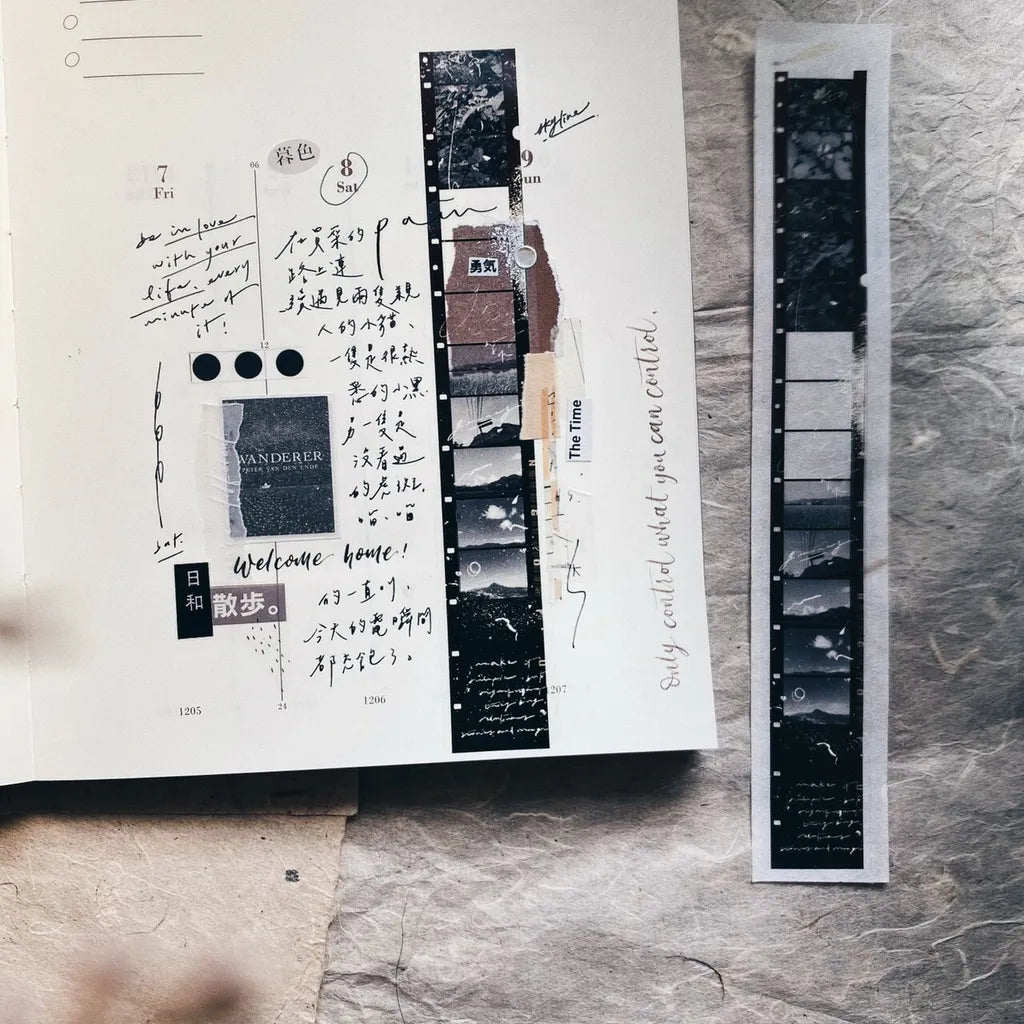 7
Fri
be in love
with your
life. every
minute of
it!
06
12
暮色
8
Sat
在買菜的
路上連
續遇見兩隻親
人的小貓、
一隻是很熟
悉的小黑
另一隻是
沒看過
的虎斑.
喵、喵
welcome home!
的一直叫,
今天的電瞬間
都充飽了。
WANDERER
PETER VAN DEN ENDE
sat.
日和
散歩。
1205
24
1206
skyline
9
un
勇気
The Time
Only control what you can control.
make it
207
9
make it
9